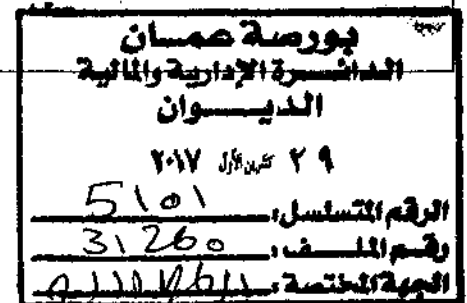 بورصة عمان
الدائرة الإدارية والمالية
الديوان
٢٩ تشرين الأول ٢٠١٧
الرقم المتسلسل: 5101
رقم الملف: 31260
الجهة المختصة: